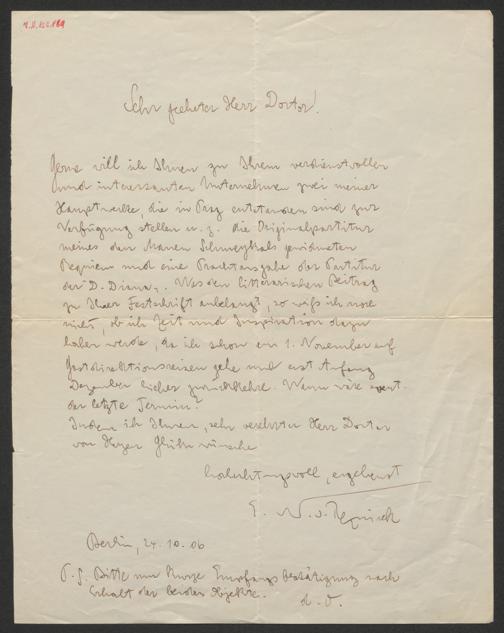 Sehr geehrter Herr Doctor!
Gerne will ich Ihnen zu Ihrem verdienstvollen
und interessanten Unternehmen zwei meiner
Hauptwerke, die in Prag entstanden sind zur
Verfügung stellen u. z. die Originalpartitur
meines den Manen Schmeykals gewidmeten
Requiem und eine Prachtausgabe der Partitur
der "D. Diana". Was den litterarischen Beitrag
zu Ihrer Festschrift anbelangt, so weiß ich noch
nicht, ob ich Zeit und Inspiration dazu
haben werde, da ich schon am 1. November auf
Gastdirektionsreisen gehe und erst Anfang
Dezember hieher zurückkehre. Wann wäre event.
der letzte Termin?
Indem ich Ihnen, sehr verehrter Herr Doctor
von Herzen Glück wünsche
hochachtungsvoll, ergebenst
E. N. v. Reznicek
Berlin, 24. 10. 06
P. S. Bitte um kurze Empfangsbestätigung nach
Erhalt der beiden Objekte.
d. O.